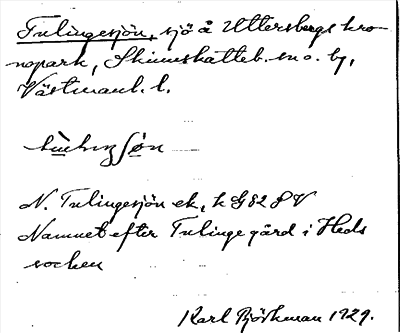 Tulingesjön, sjö å Uttersbergs kro-
nopark, Skinnskatteb. sn o. by,
Västmanl. l.
N. Tulingesjön ek. k G82 SV
Namnet efter Tulinge gård i Heds
socken
Karl Björkman 1929.